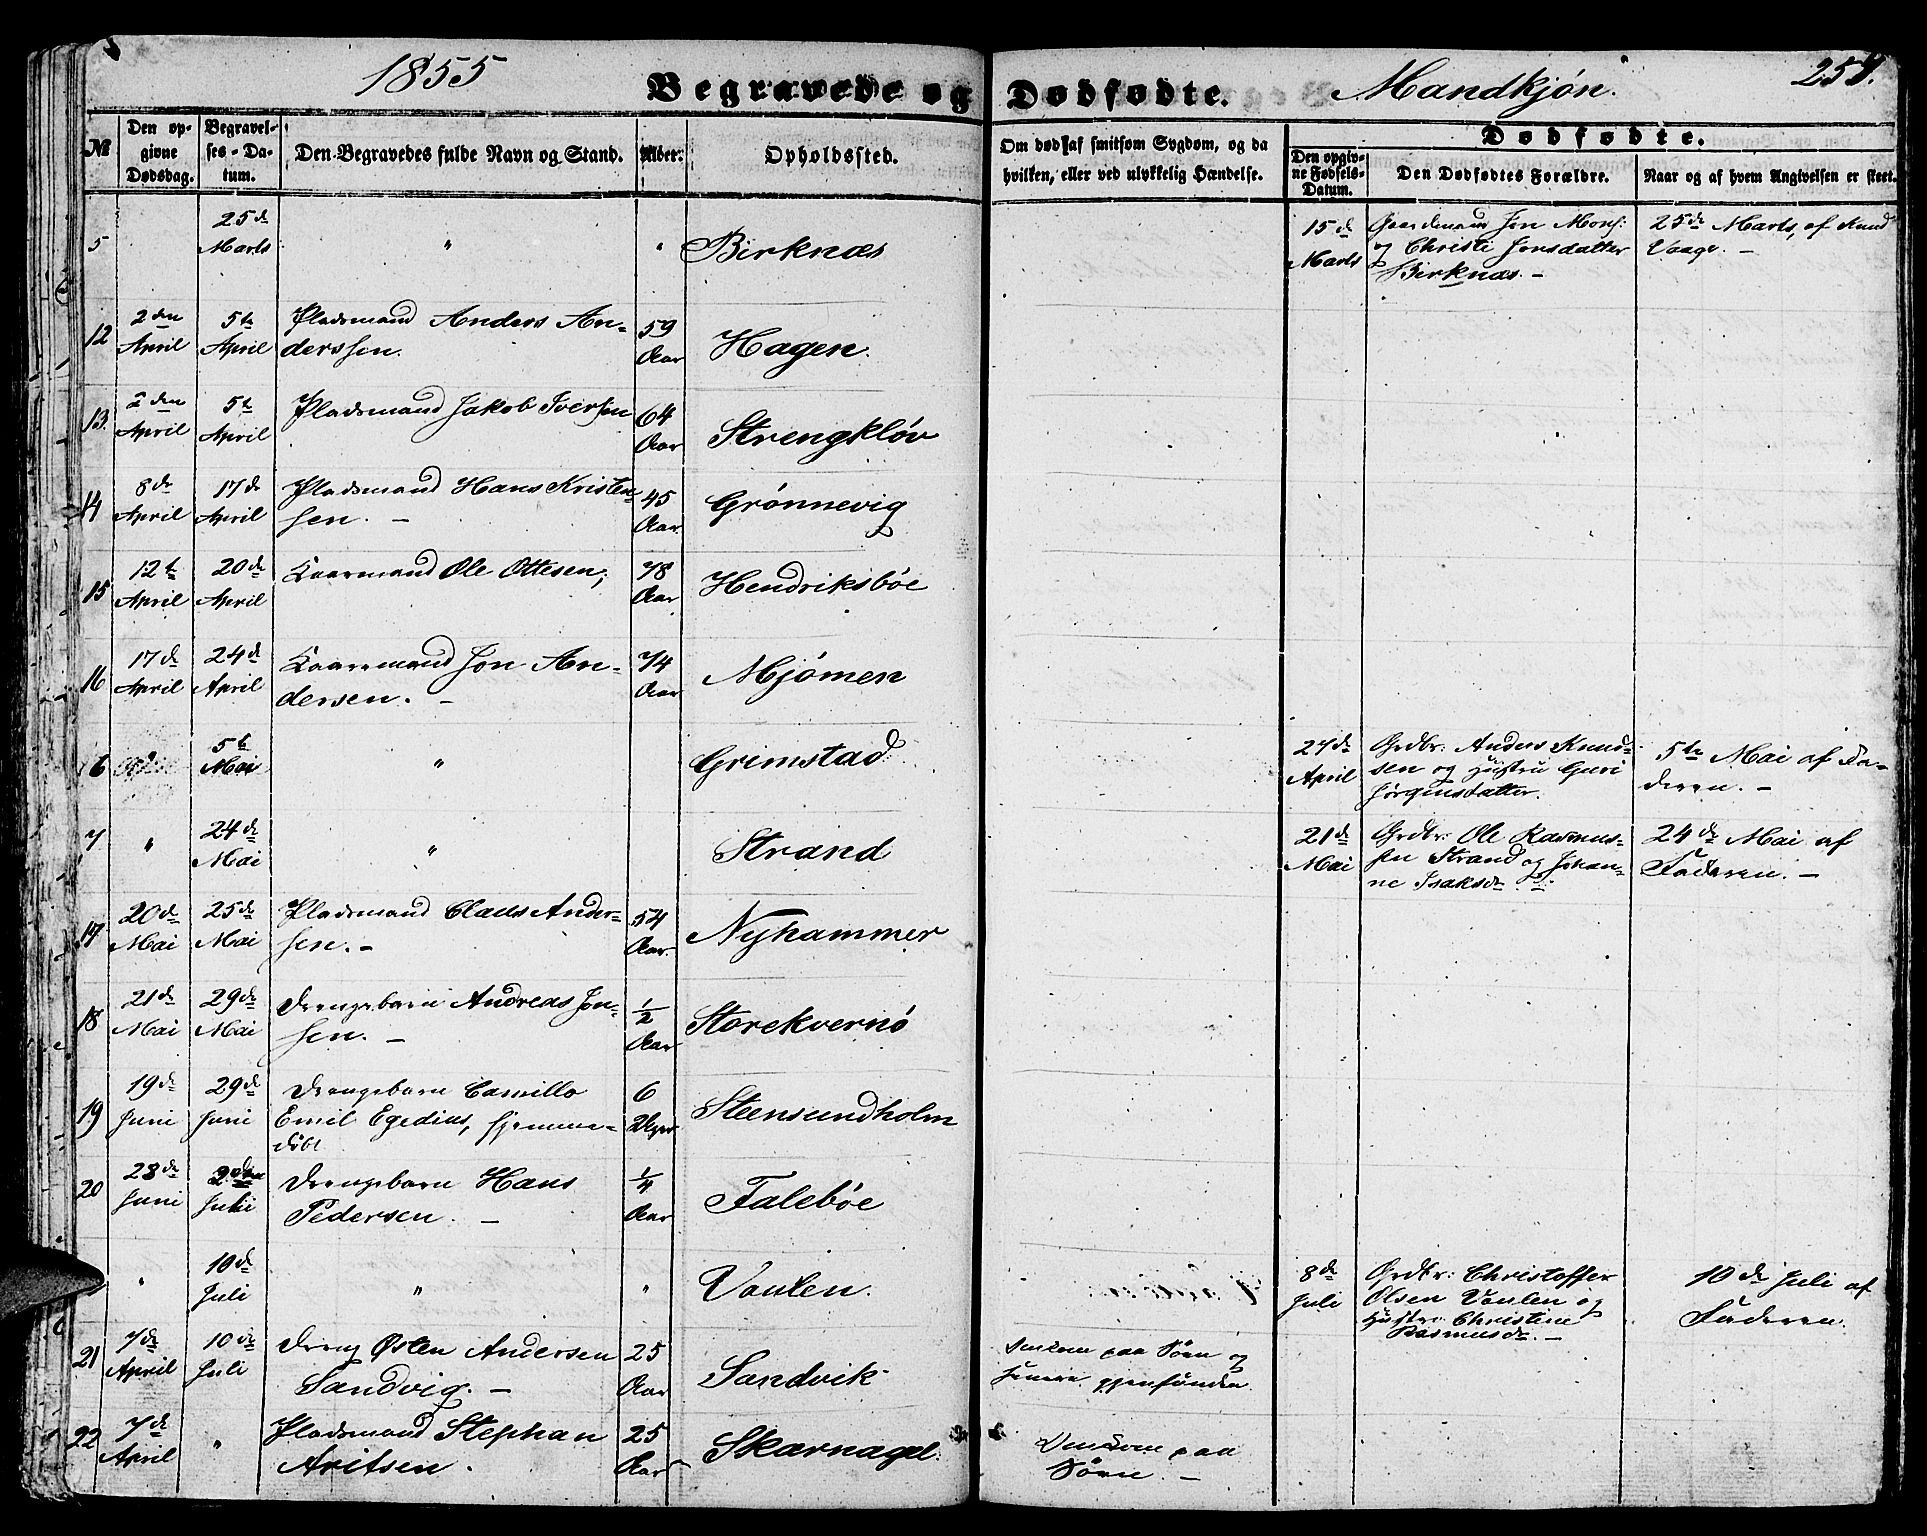 1855
Begravede og Dødfødte.
Mandkjøn.
257.
No
Den op-
givne
Dødsdag.
Begravel-
ses-Da-
tum.
Den Begravedes fulde Navn og Stand.
Alder.
Opholdssted.
Om død af smitsom Sygdom, og da
hvilken, eller ved ulykkelig Hændelse.
Dødfødte.
Den opgiv-
ne Fødsels-
Datum.
Den Dødfødtes Forældre.
Naar og af hvem Angivelsen er skeet.
5
25de
Marts
"
"
Birknæs
15de
Marts
Gaardmand Jon Mons:
og Christi Jonsdatter
Birknæs. -
25de Marts, af Knud
Vaage. -
12
2den
April
5te
April
Pladsmand Anders An-
derssen.
59
Aar
Hagen.
13.
2den
April
5te
April
Pladsmand Jakob Iversen
64
Aar
Strengkløv
14
8de
April
17de
April
Pladsmand Hans Kristen-
sen. -
45
Aar
Grønnevig
15
12te
April
20de
April
Kaarmand Ole Ottesen,
78
Aar
Hendriksbøe
16
17de
April
24de
April
Kaaremand Jon An-
dersen. -
74
Aar
Mjømen
6
5te
Mai
"
Grimstad
27de
April
Grdbr: Anders Knud-
sen og Hustru Guri
Jørgensdatter.
5te Mai af Fa-
deren. -
7
"
24de
Mai
"
Strand
21de
Mai
Grdbr: Ole Rasmus-
sen Strand og Johan-
ne Isaksdr. -
24de Mai af
Faderen. -
17
20de
Mai
25de
Mai
Pladsmand Claus Ander-
sen. -
54
Aar.
Nyhammer
18
21de
Mai
29de
Mai
Drengebarn Andreas Jon-
sen. -
1/2
Aar
Storekvernø
19
19de
Juni
29de
Juni
Drengebarn Camillo
Emil Egedius, hjemme-
døbt
6
Uger
Steensundholm
20
28de
Juni
Juli
Drengebarn Hans
Pedersen. -
1/4
Aar
Falebøe
"
10de
Juli
"
"
Vaulen.
8de
Juli
Grdbr: Christoffer
Olsen Vaulen og
Hustru Christine
Rasmusdr. -
10de Juli af
Faderen.
21
7de
April
10de
Juli
Dreng Østen Andersen
Sandvig. -
25
Aar
Sandvik
Omkom paa Søen og
senere gjenfunden.
22
7de
April
"
Pladsmand Stephan
Aritsen.
25
Aar
Skarnagel.
Omkom paa
Søen. -